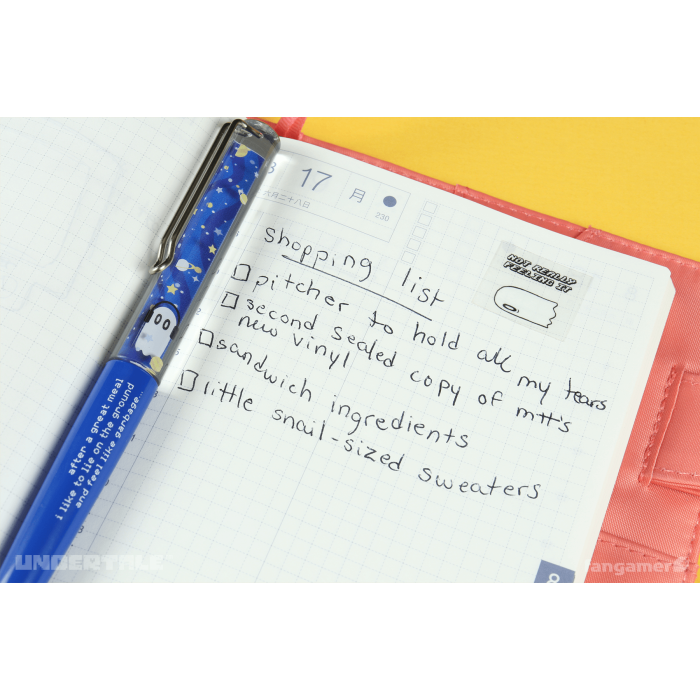 17 月
六月二十八日
230
NOT REALLY
FEELING IT
shopping list
pitcher to hold all my tears
second sealed copy of mtt's
new vinyl
sandwich ingredients
little snail-sized sweaters
after a great meal
i like to lie on the ground
and feel like garbage...
UNDERTALE
fangamer